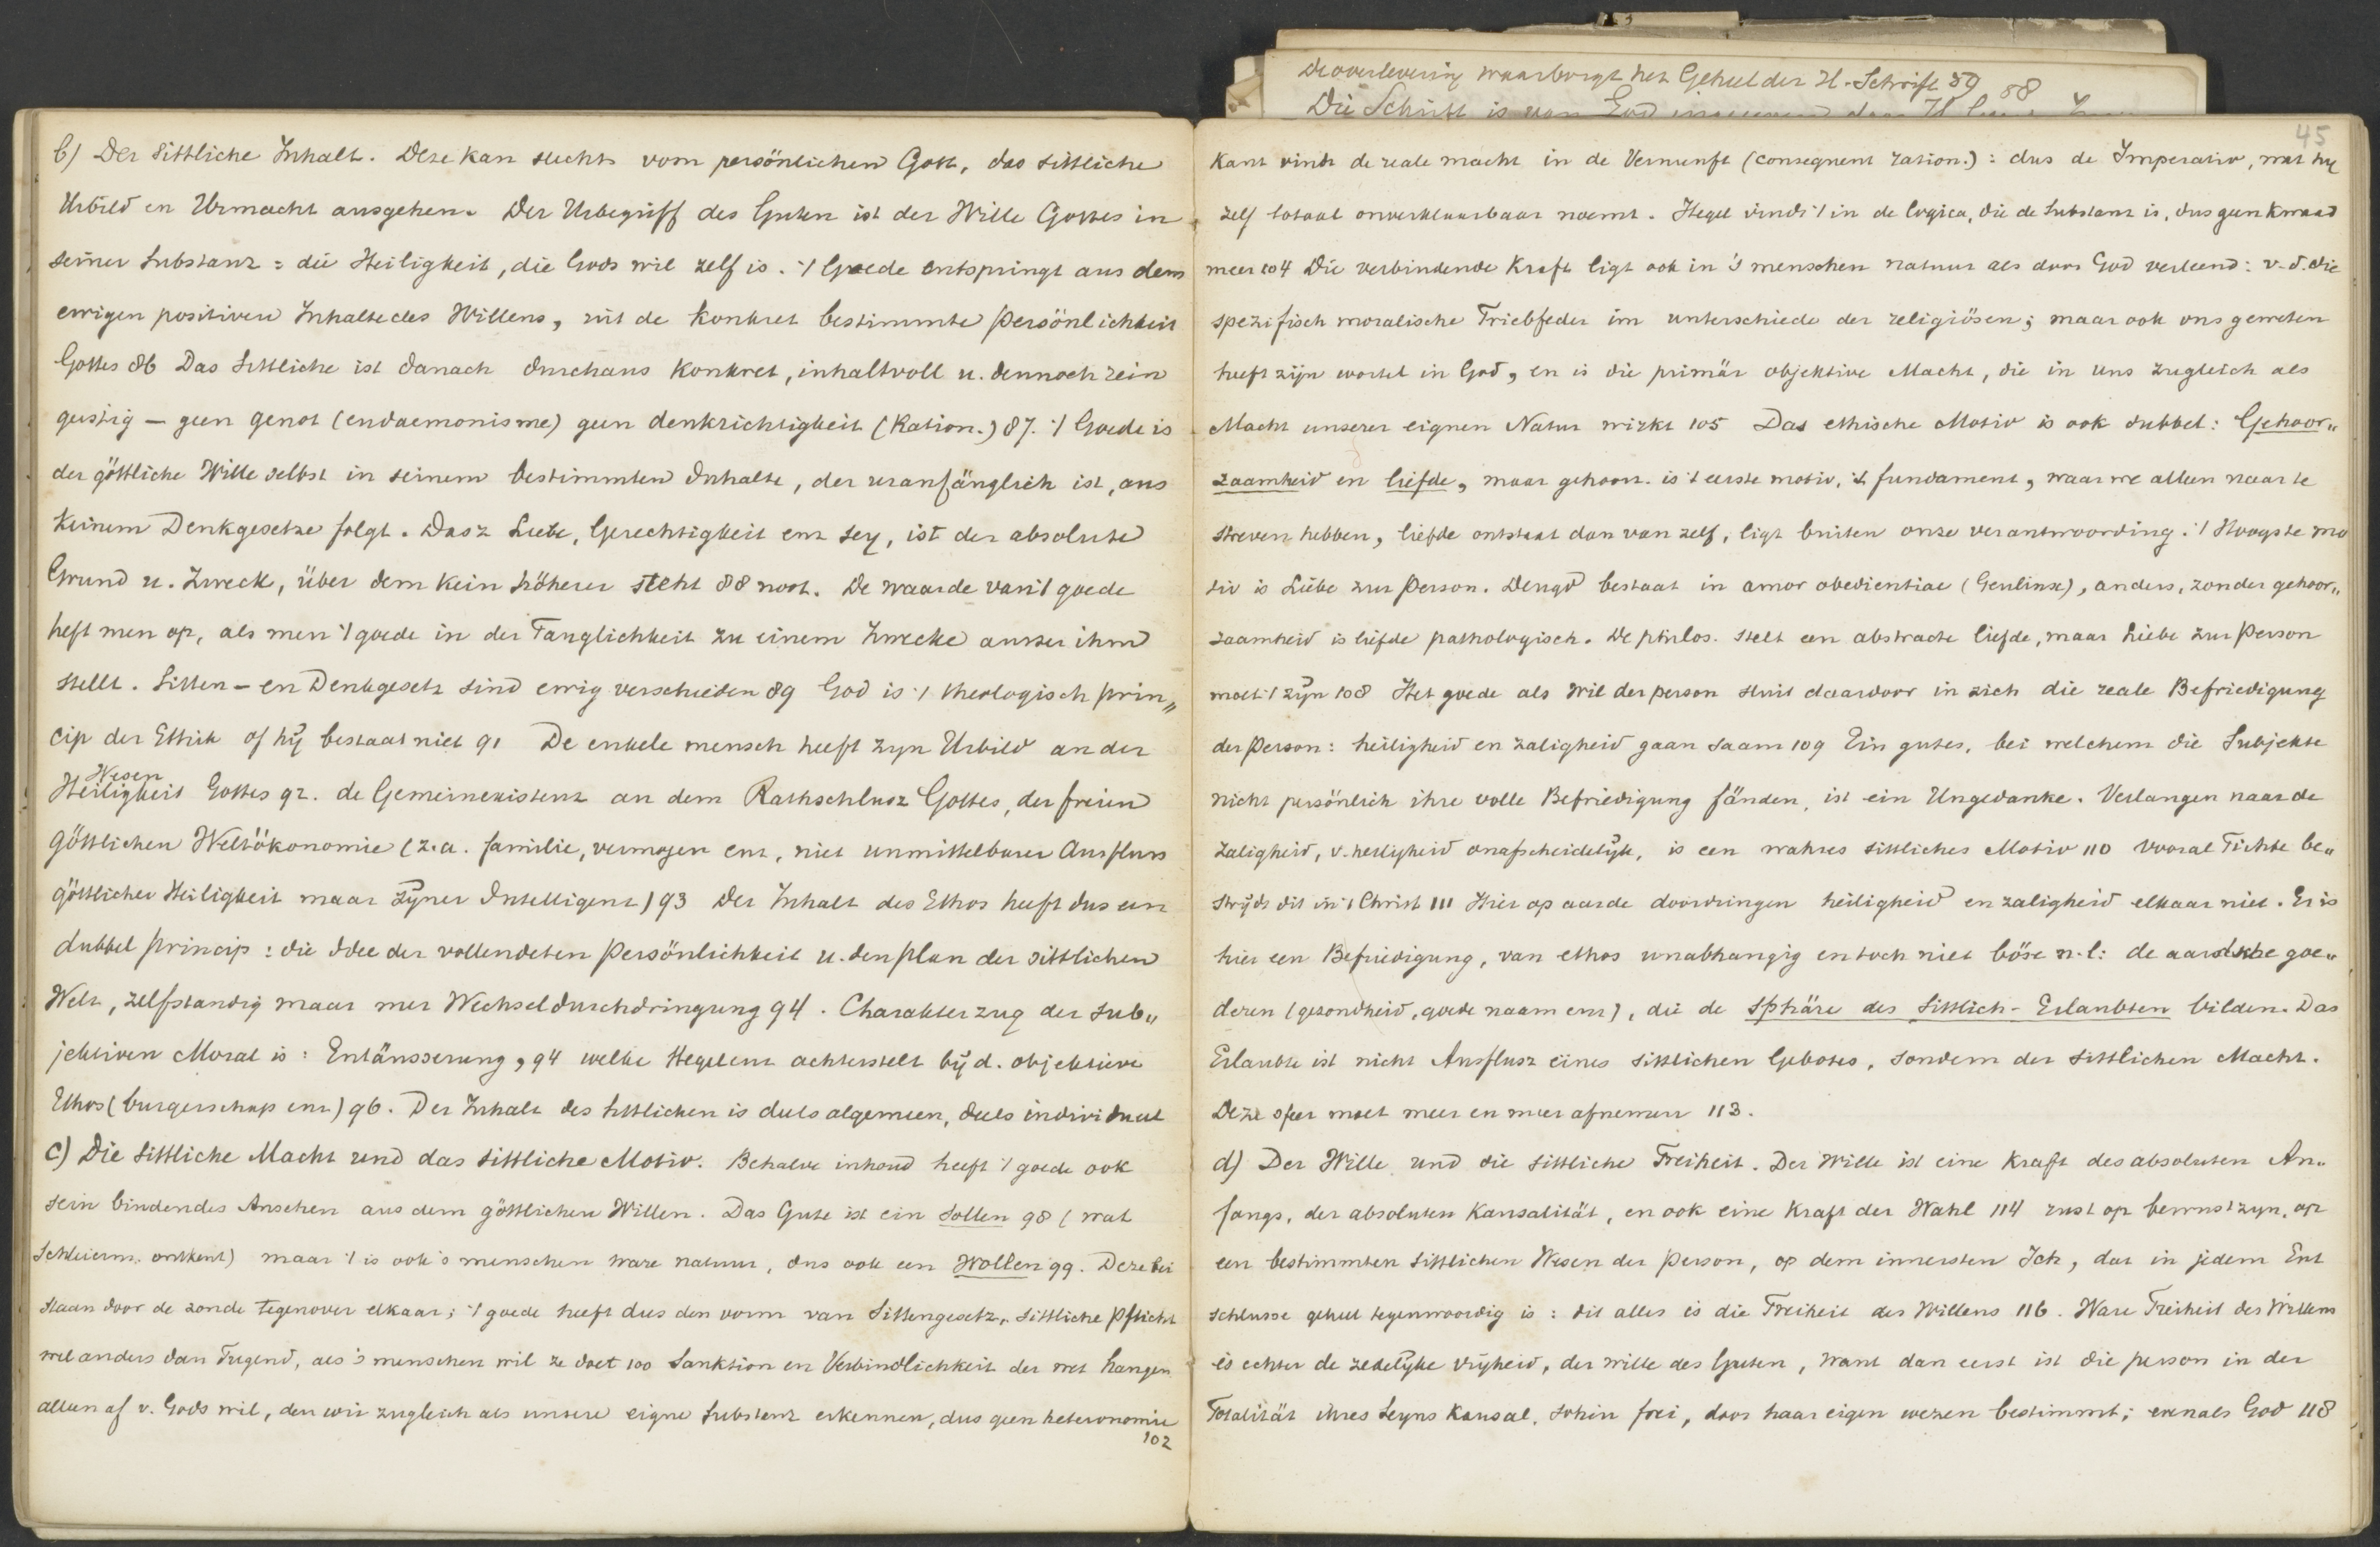 De overlevering waarborgt het Geheel der H. Schrift 59 58
Die Schrift is van God
45
b) Der sittliche Inhalt. Deze kan slechts vom persönlichen Gott, das sittliche
Urbild en Urmacht ausgehen. Der Urbegriff des Guten ist der Wille Gottes in
seiner Substanz = die Heiligkeit, die Gods wil zelf is. 't Goede entspringt aus dem
ewigen positiven Inhalte des Willens, uit de konkret bestimmte Persönlichkeit
Gottes 86 Das Sittliche ist danach durchaus konkret, inhaltvoll u. dennoch rein
geistig — geen genot (eudaemonisme) geen denkrichtigkeit (Ration.) 87. 't Goede is
der göttliche Wille selbst in seinem bestimmten Inhalte, der uranfänglich ist, aus
keinem Denkgesetze folgt. Dasz Liebe, Gerechtigkeit enz sey, ist der absolute
Grund u. Zweck, über dem kein höherer steht 88 noot. De waarde van 't goede
heft men op, als men 't goede in der Tauglichkeit zu einem Zwecke ausser ihm
stellt. Sitten- en Denkgesetz sind ewig verschieden 89 God is 't theologisch prin„
cip der Ethik of hij bestaat niet 91 De enkele mensch heeft zyn Urbild an der
Wesen
Heiligkeit Gottes 92. de Gemeinexistenz an dem Rathschlusz Gottes, der freien
göttlichen Weltökonomie (z.a. familie, vermogen enz, niet unmittelbarer Ausfluss
göttlicher Heiligkeit maar zyner Intelligenz) 93 Der Inhalt des Ethos heeft dus een
dubbel princip: die Idee der vollendeten Persönlichkeit u. den plan der sittlichen
Welt, zelfstandig maar mer Wechseldurchdringung 94. Charakterzug der sub„
jektiven Moral is: Entäusserung, 94 welke Hegel enz achterstelt bij d. objektieve
Ethos (burgerschap enz) 96. Der Inhalt des Sittlichen is deels algemeen, deels individueel
c) Die Sittliche Macht und das sittliche Motiv. Behalve inhoud heeft 't goede ook
sein bindendes Ansehen aus dem göttlichen Willen. Das Gute ist ein Sollen 98 (wat
Schleierm. ontkent) maar 't is ook 's menschen ware natuur, dus ook een Wollen 99. Deze bei
staan door de zonde tegenover elkaar; 't goede heeft dus den vorm van Sittengesetz, sittliche Pflicht
wel anders dan Tugend, als 's menschen wil ze doet 100 Sanktion en Verbindlichkeit der wet hangen
alleen af v. Gods wil, den wir zugleich als unsere eigne Substanz erkennen, dus geen heteronomie
102
Kant vindt de reale macht in de Vernunft (consequent ration.): dus de Imperativ, wat hy
zelf totaal onverklaarbaar noemt. Hegel vindt 't in de logica, die de Substanz is, dus geen kwaad
meer 104 Die verbindende Kraft ligt ook in 's menschen natuur als door God verleend: v.d. die
spezifisch moralische Triebfeder im unterschiede der religiösen; maar ook ons geweten
heeft zijn wortel in God, en is die primär objektive Macht, die in uns zugleich als
Macht unserer eignen Natur wirkt 105 Das ethische Motiv is ook dubbel: Gehoor„
zaamheid en liefde, maar gehoorz. is 't eerste motiv, 't fundament, waar we alleen naar te
streven hebben, liefde ontstaat dan van zelf, ligt buiten onze verantwoording. 't Hoogste mo
tiv is Liebe zur Person. Deugd bestaat in amor obedientiae (Geulinx), anders, zonder gehoor„
zaamheid is liefde pathologisch. De philos. stelt een abstracte liefde, maar Liebe zur Person
moet 't zijn 108 Het goede als wil der person sluit daardoor in zich die reale Befriedigung
der Person: heiligheid en zaligheid gaan saam 109 Ein gutes, bei welchem die Subjekte
nicht persönlich ihre volle Befriedigung fänden, ist ein Ungedanke. Verlangen naar de
zaligheid, v. heiligheid onafscheidelijk, is een wahres sittliches Motiv 110 Vooral Fichte be„
strijdt dit in 't Christ 111 Hier op aarde doordringen heiligheid en zaligheid elkaar niet. Er is
hier een Befriedigung, van ethos unabhangig en toch niet böse n.l: de aardsche goe„
deren (gezondheid, goede naam enz), die de sphäre des Sittlich-Erlaubten bilden. Das
Erlaubte ist nicht Ausflusz eines sittlichen Gebotes, sondern der sittlichen Macht.
Deze sfeer moet meer en meer afnemen 113.
d) Der Wille und die sittliche Freiheit. Der Wille ist eine Kraft des absoluten An„
fangs, der absoluten Kausalität, en ook eine Kraft der Wahl 114 rust op bewustzyn, op
een bestimmten sittlichen Wesen der Person, op dem innersten Ich, dat in jedem Ent
schlusse geheel tegenwoordig is: dit alles is die Freiheit des Willens 116. Ware Freiheit des Willens
is echter de zedelijke vrijheid, der wille des Guten, want dan eerst ist die person in der
Totalität ihres Seyns kausal, sohin frei, door haar eigen wezen bestimmt; evenals God 118